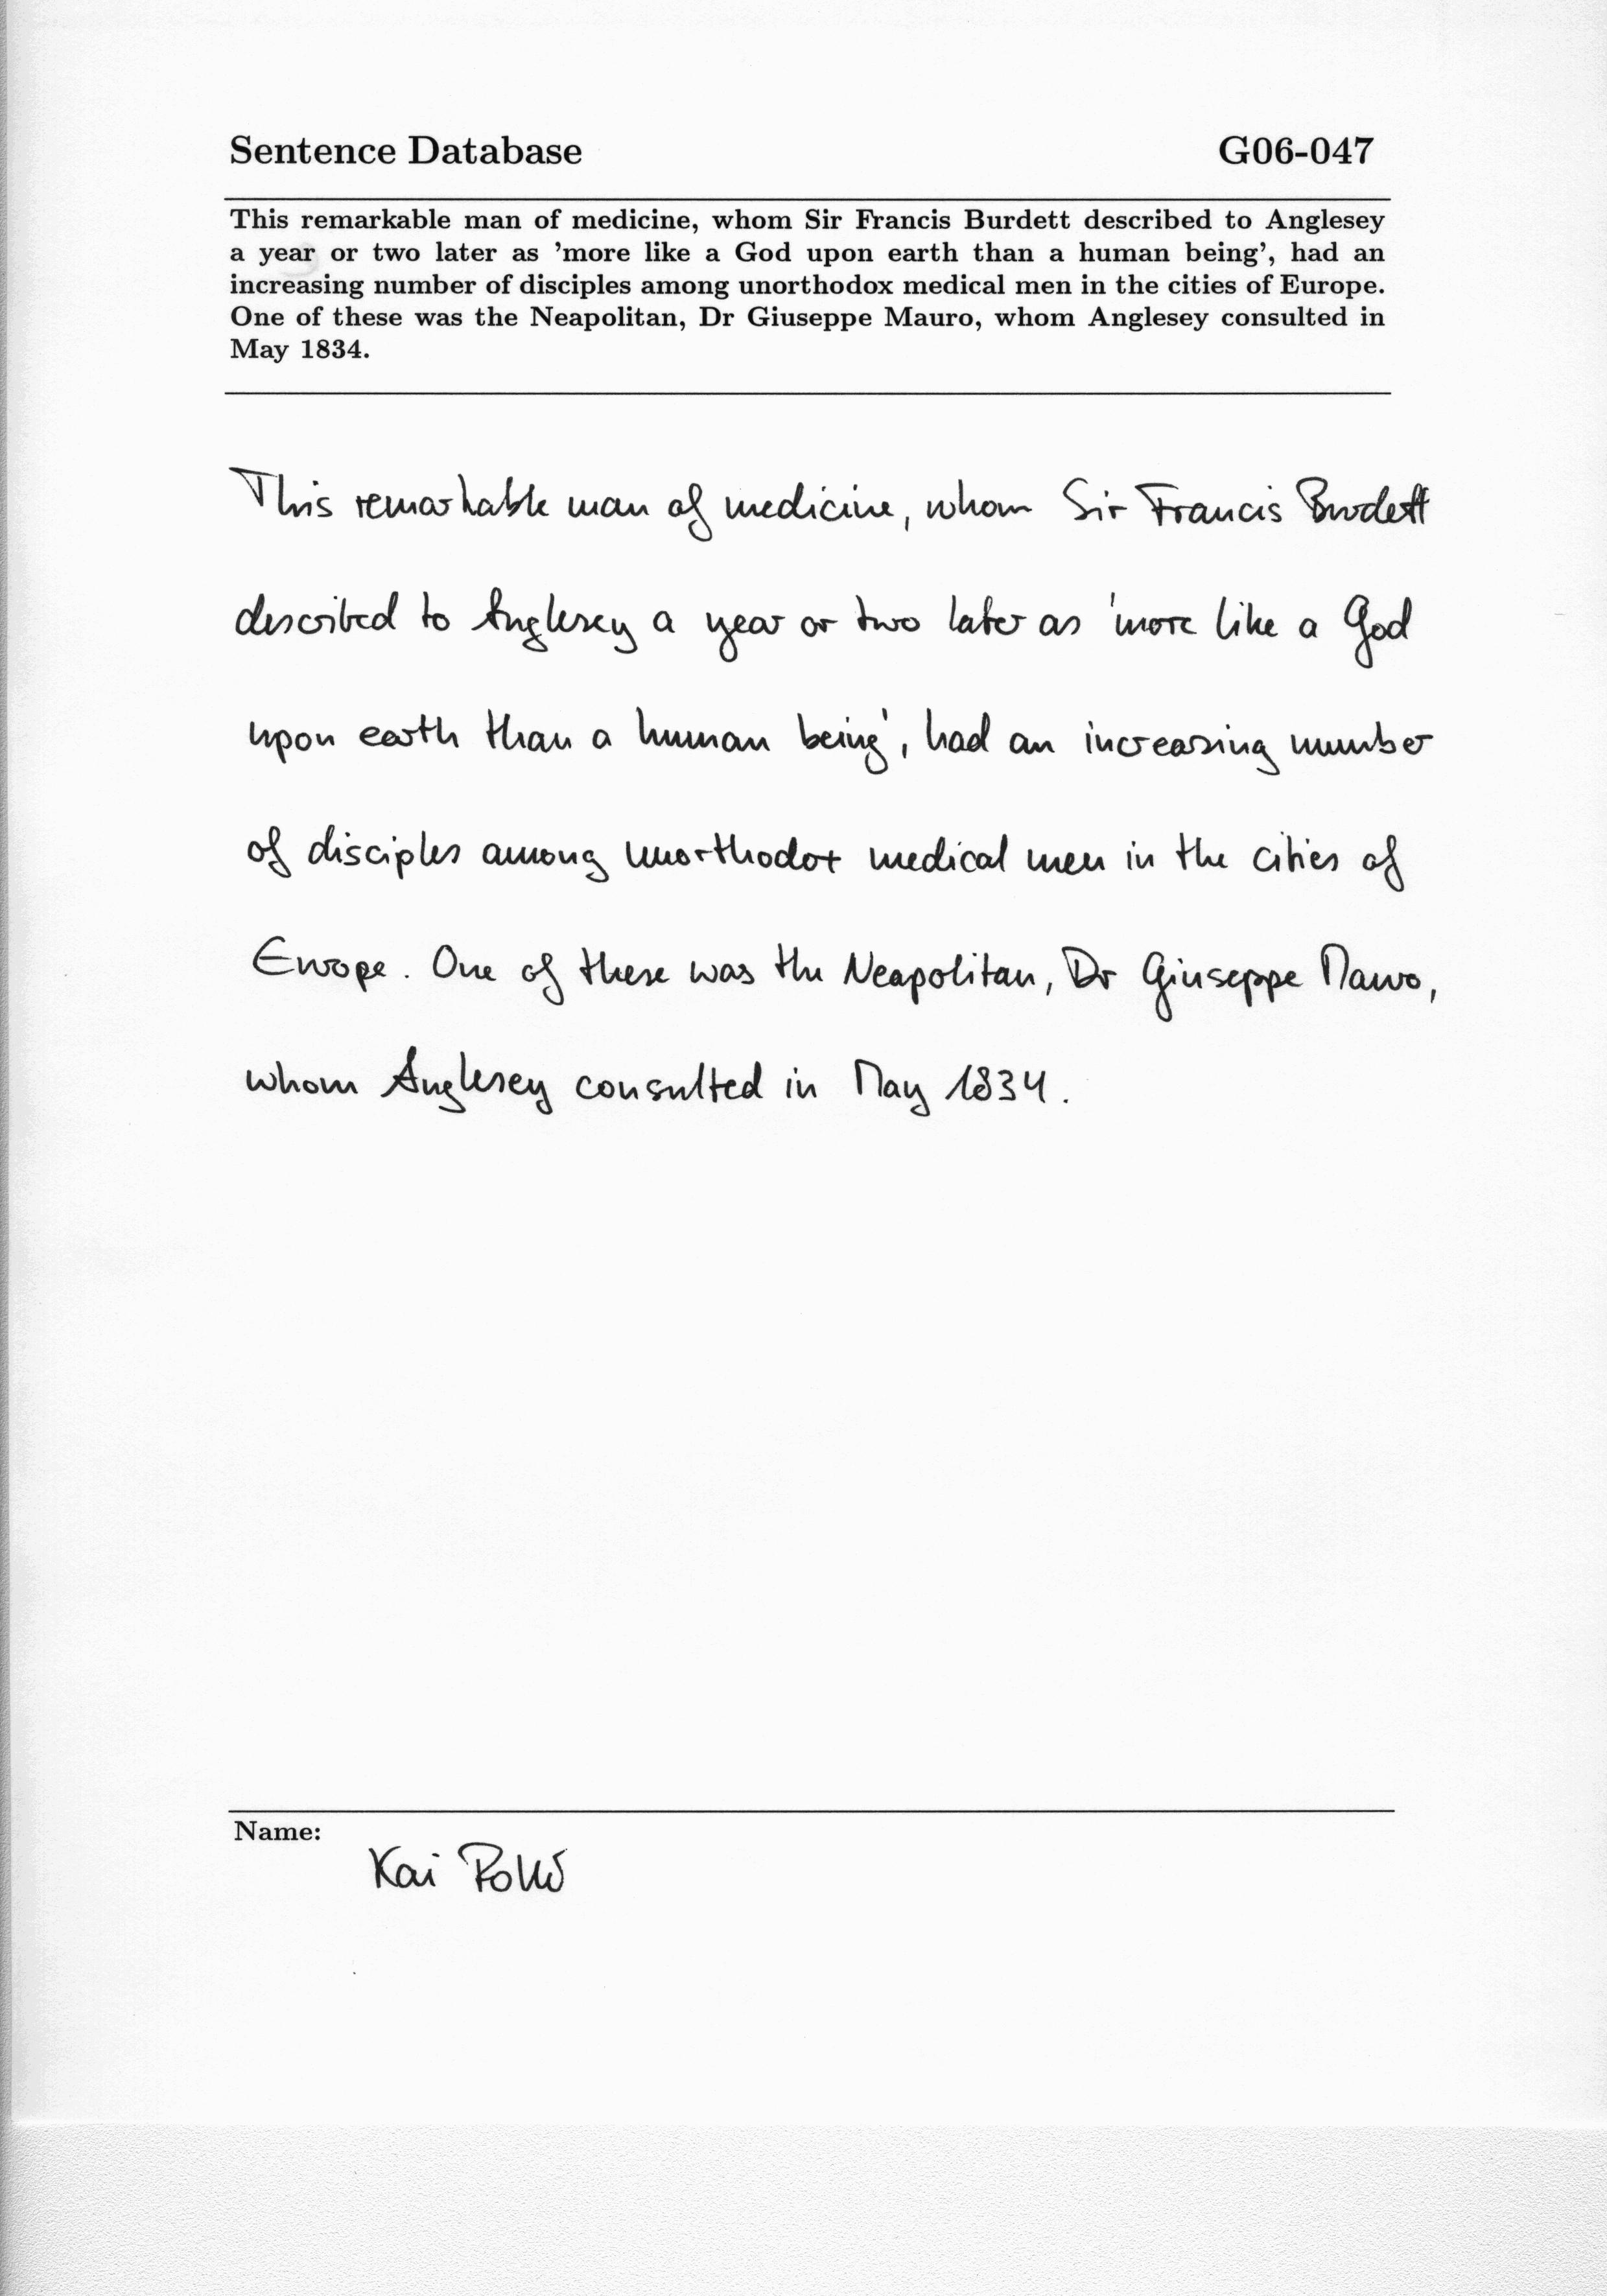 Sentence Database G06-047
This remarkable man of medicine, whom Sir Francis Burdett described to Anglesey
a year or two later as 'more like a God upon earth than a human being', had an
increasing number of disciples among unorthodox medical men in the cities of Europe.
One of these was the Neapolitan, Dr Giuseppe Mauro, whom Anglesey consulted in
May 1834.
This remarkable man of medicine, whom Sir Francis Burdett
described to Anglesey a year or two later as 'more like a God
upon earth than a human being', had an increasing number
of disciples among unorthodox medical men in the cities of
Europe. One of these was the Neapolitan, Dr Giuseppe Mauro,
whom Anglesey consulted in May 1834.
Name:
Kai